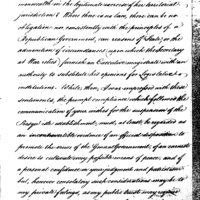 manwealth on the legitimate exercise of her territorial
jurisdiction! Where there is no law, there can be no
obligation: nor consistently with the principles of a
Republican Government, can reasons of State, or the
admonition of circumstances upon which the Secretary
at War relies furnish an Executive magistrate with an
authority to substitute his opinions for Legislative
institutions. While, then, I am impressed with these
sentiments, the prompt compliance which followed the
communication of your wishes for the suspension of the
Presqu' isle establishment, must, at least, be regarded as
an incontrovertible evidence of an official disposition to
promote the views of the General Government; of an earnest
desire to cultivate every probable means of peace; and of
a personal confidence in your judgment and patriotism
but, however consolatory such considerations may be to
my private feelings, as my public trust may require